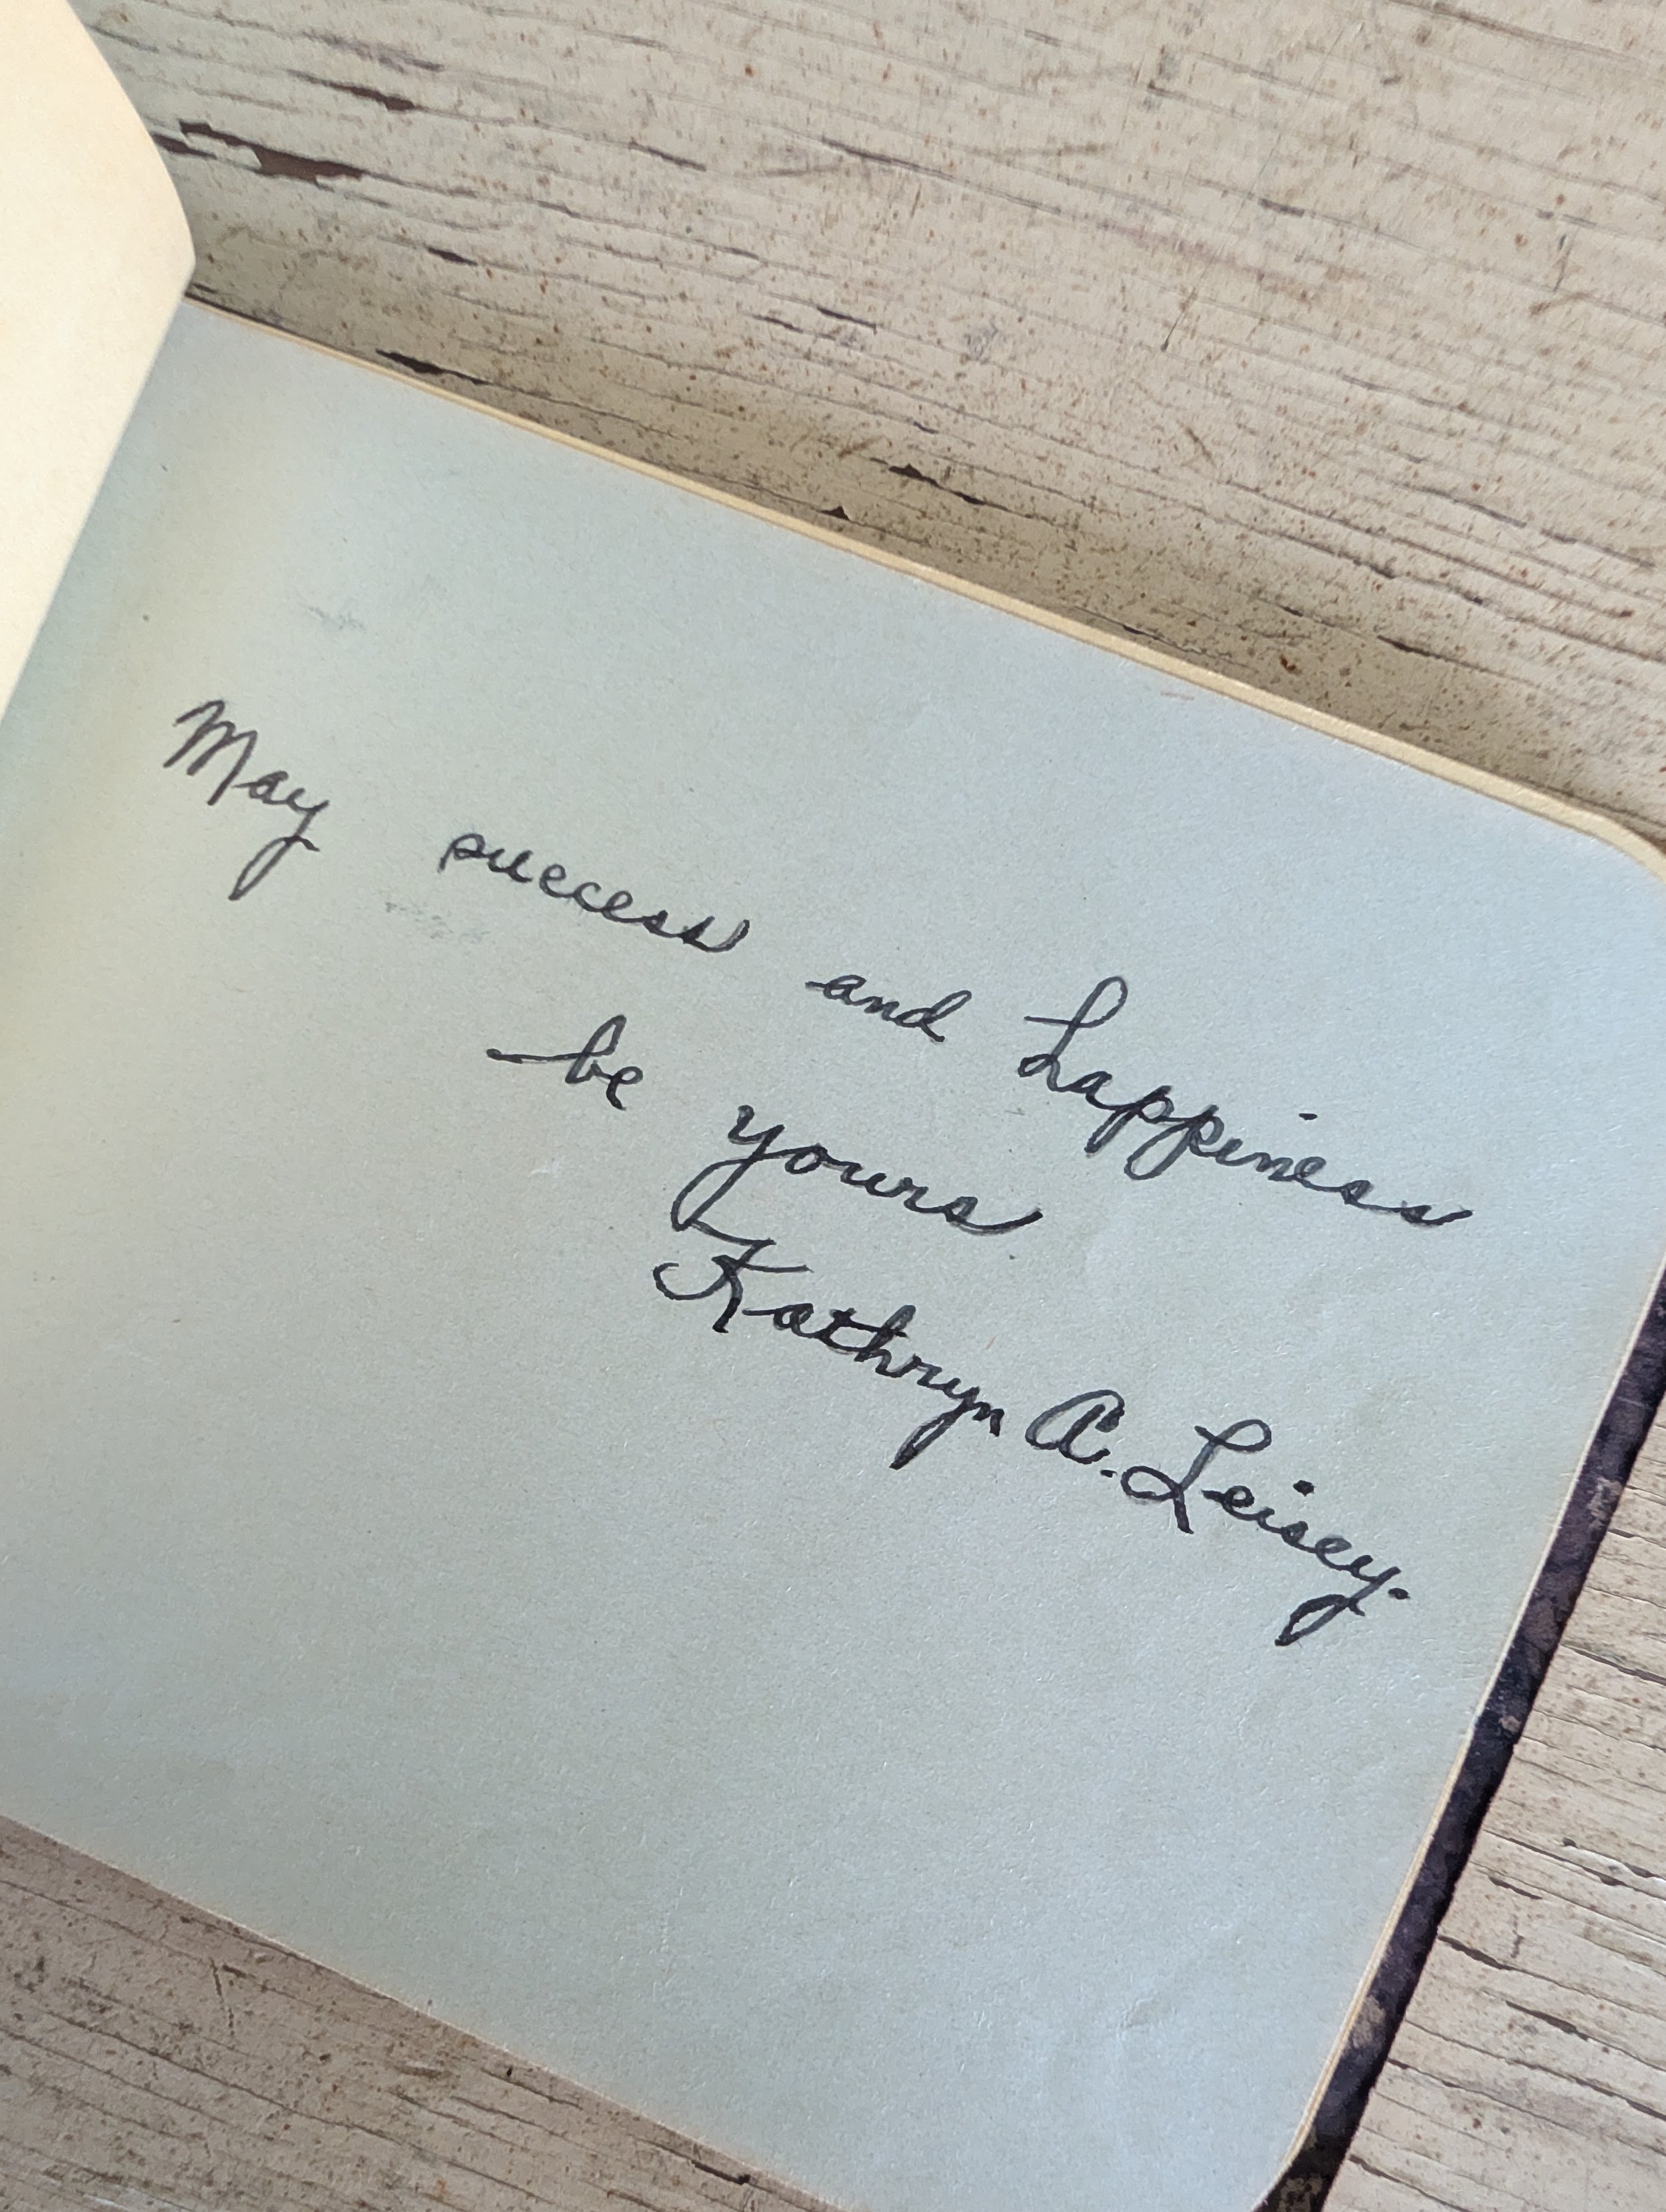 May success and happiness
be yours
Kathryn A. Leisey.